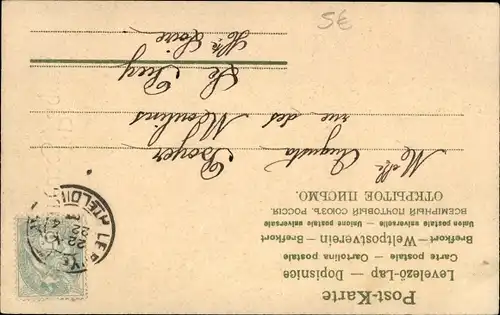 Post-Karte
Levelező-Lap — Dopisnice
Carte postale — Cartolina postale
Brefkort — Weltpostverein — Brefkort
Union postale universelle — Unione postale universale
ВСЕМІРНЫЙ ПОЧТОВЫЙ СОЮЗЪ. РОССІЯ.
ОТКРЫТОЕ ПИСЬМО.
Melle Augusta Boyer
rue des Moulins
Le Puy
Hte Loire
LE PUY
5€